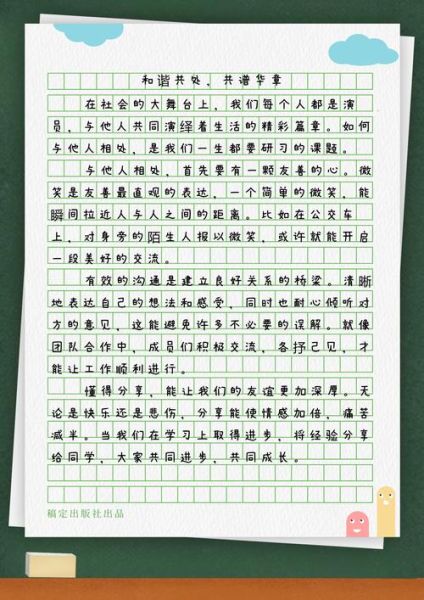 和谐共处，共谱华章
在社会的大舞台上，我们每个人都是演
员，与他人共同演绎着生活的精彩篇章。如何
与他人相处，是我们一生都要研习的课题。
与他人相处，首先要有一颗友善的心。微
笑是友善最直观的表达，一个简单的微笑，能
瞬间拉近人与人之间的距离。比如在公交车
上，对身旁的陌生人报以微笑，或许就能开启
一段美好的交流。
有效的沟通是建立良好关系的桥梁。清晰
地表达自己的想法和感受，同时也耐心倾听对
方的意见，这能避免许多不必要的误解。就像
团队合作中，成员们积极交流，各抒己见，才
能让工作顺利进行。
懂得分享，能让我们的友谊更加深厚。无
论是快乐还是悲伤，分享能使情感加倍，痛苦
减半。当我们在学习上取得进步，将经验分享
给同学，大家共同进步，共同成长。
稿定出版社出品